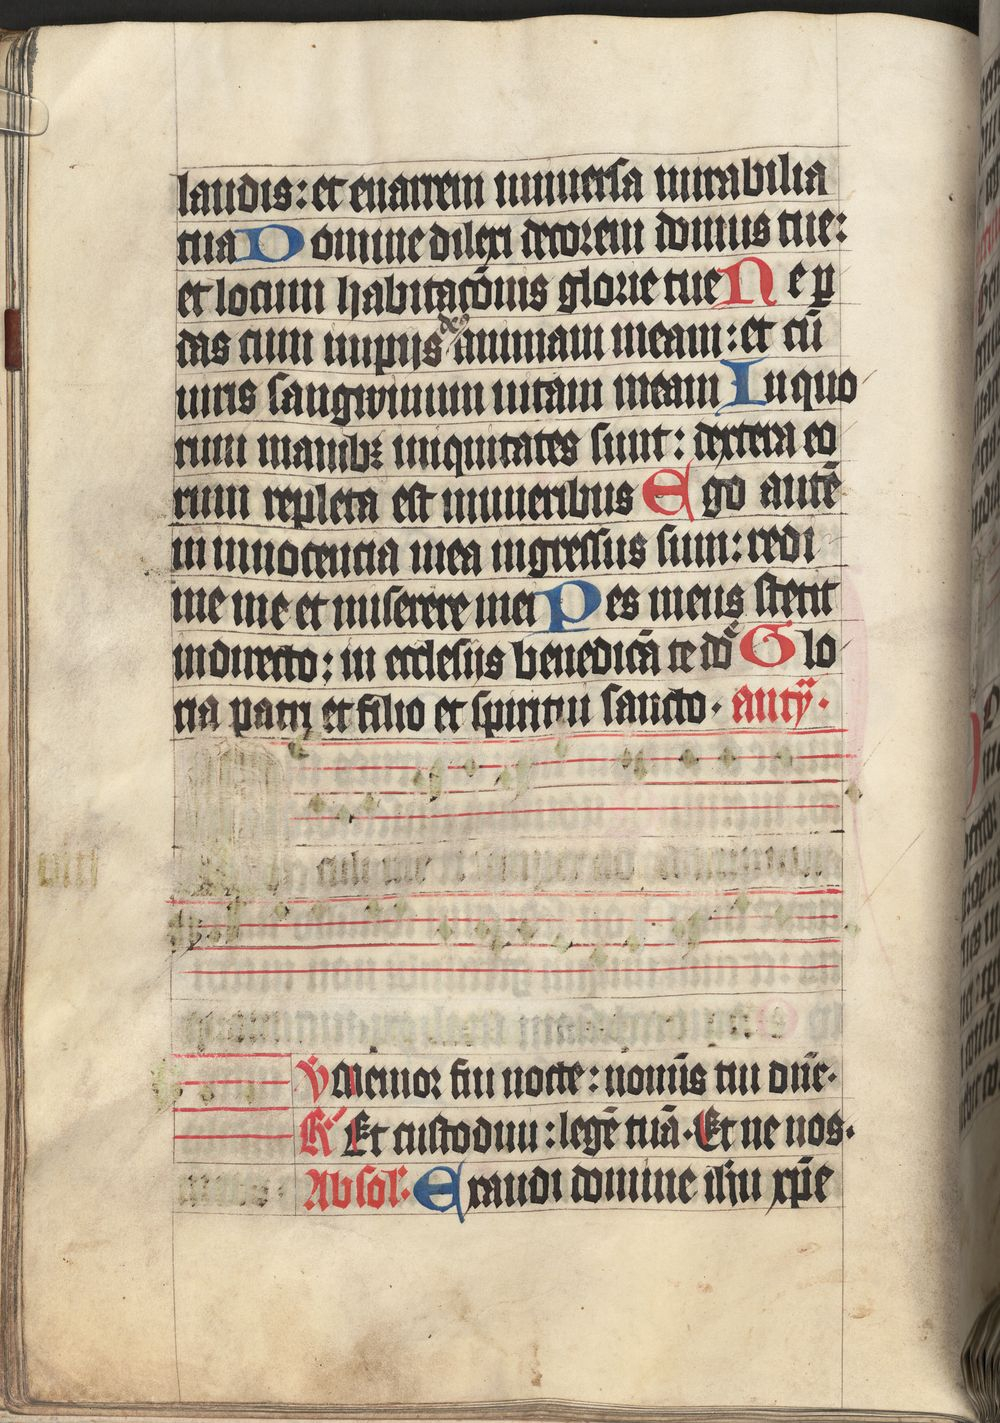 laudis: et enarrem universa mirabilia
tua Domine dilexi decorem domus tue:
et locum habitacōnis glorie tue Ne ꝑ
das cum impijs deꝰ animam meam: et cū
viris sangwinum vitam meam In quo
rum manibꝫ iniquitates sunt: dextera eo
rum repleta est muneribus Ego autē
in innocentia mea ingressus sum: redi
me me et miserere mei Pes meus stetit
in directo: in ecclesijs benedicā te dō Glo
ria patri et filio et spiritui sancto. antÿ.
℣ Memor fui nocte: nomīs tui dn̄e.
℟ Et custodivi: legē tuā. Et ne nos.
Absol: Exaudi domine ihū xp̄e